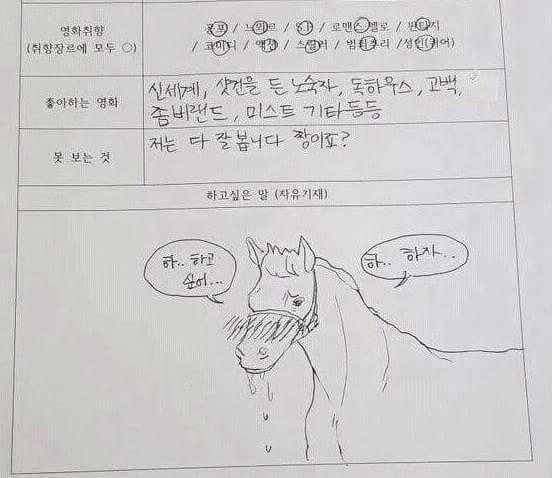 영화취향 공포 / 느와르 / SF / 로맨스멜로 / 판타지
(취향장르에 모두 ○) / 코미디 / 액션 / 스릴러 / 범죄추리 / 성인(퀴어)
좋아하는 영화 신세계, 샷건을 든 노숙자, 독하우스, 고백,
좀비랜드, 미스트 기타등등
못 보는 것 저는 다 잘 봅니다 짱이죠?
하고싶은 말 (자유기재)
하.. 하고
싶어...
하.. 하자..